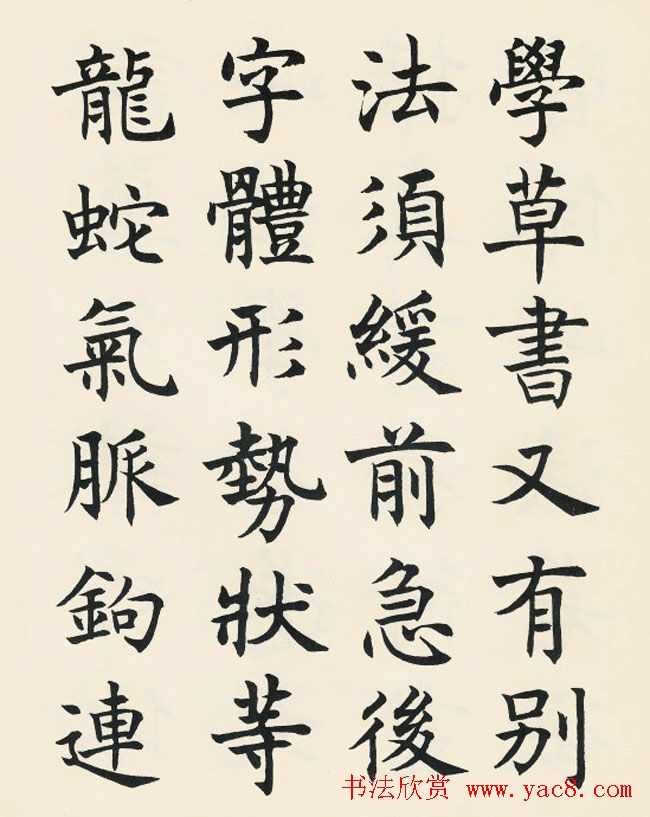 學草書又有别
法須緩前急後
字體形勢狀等
龍蛇氣脈鉤連
书法欣赏 www.yac8.com